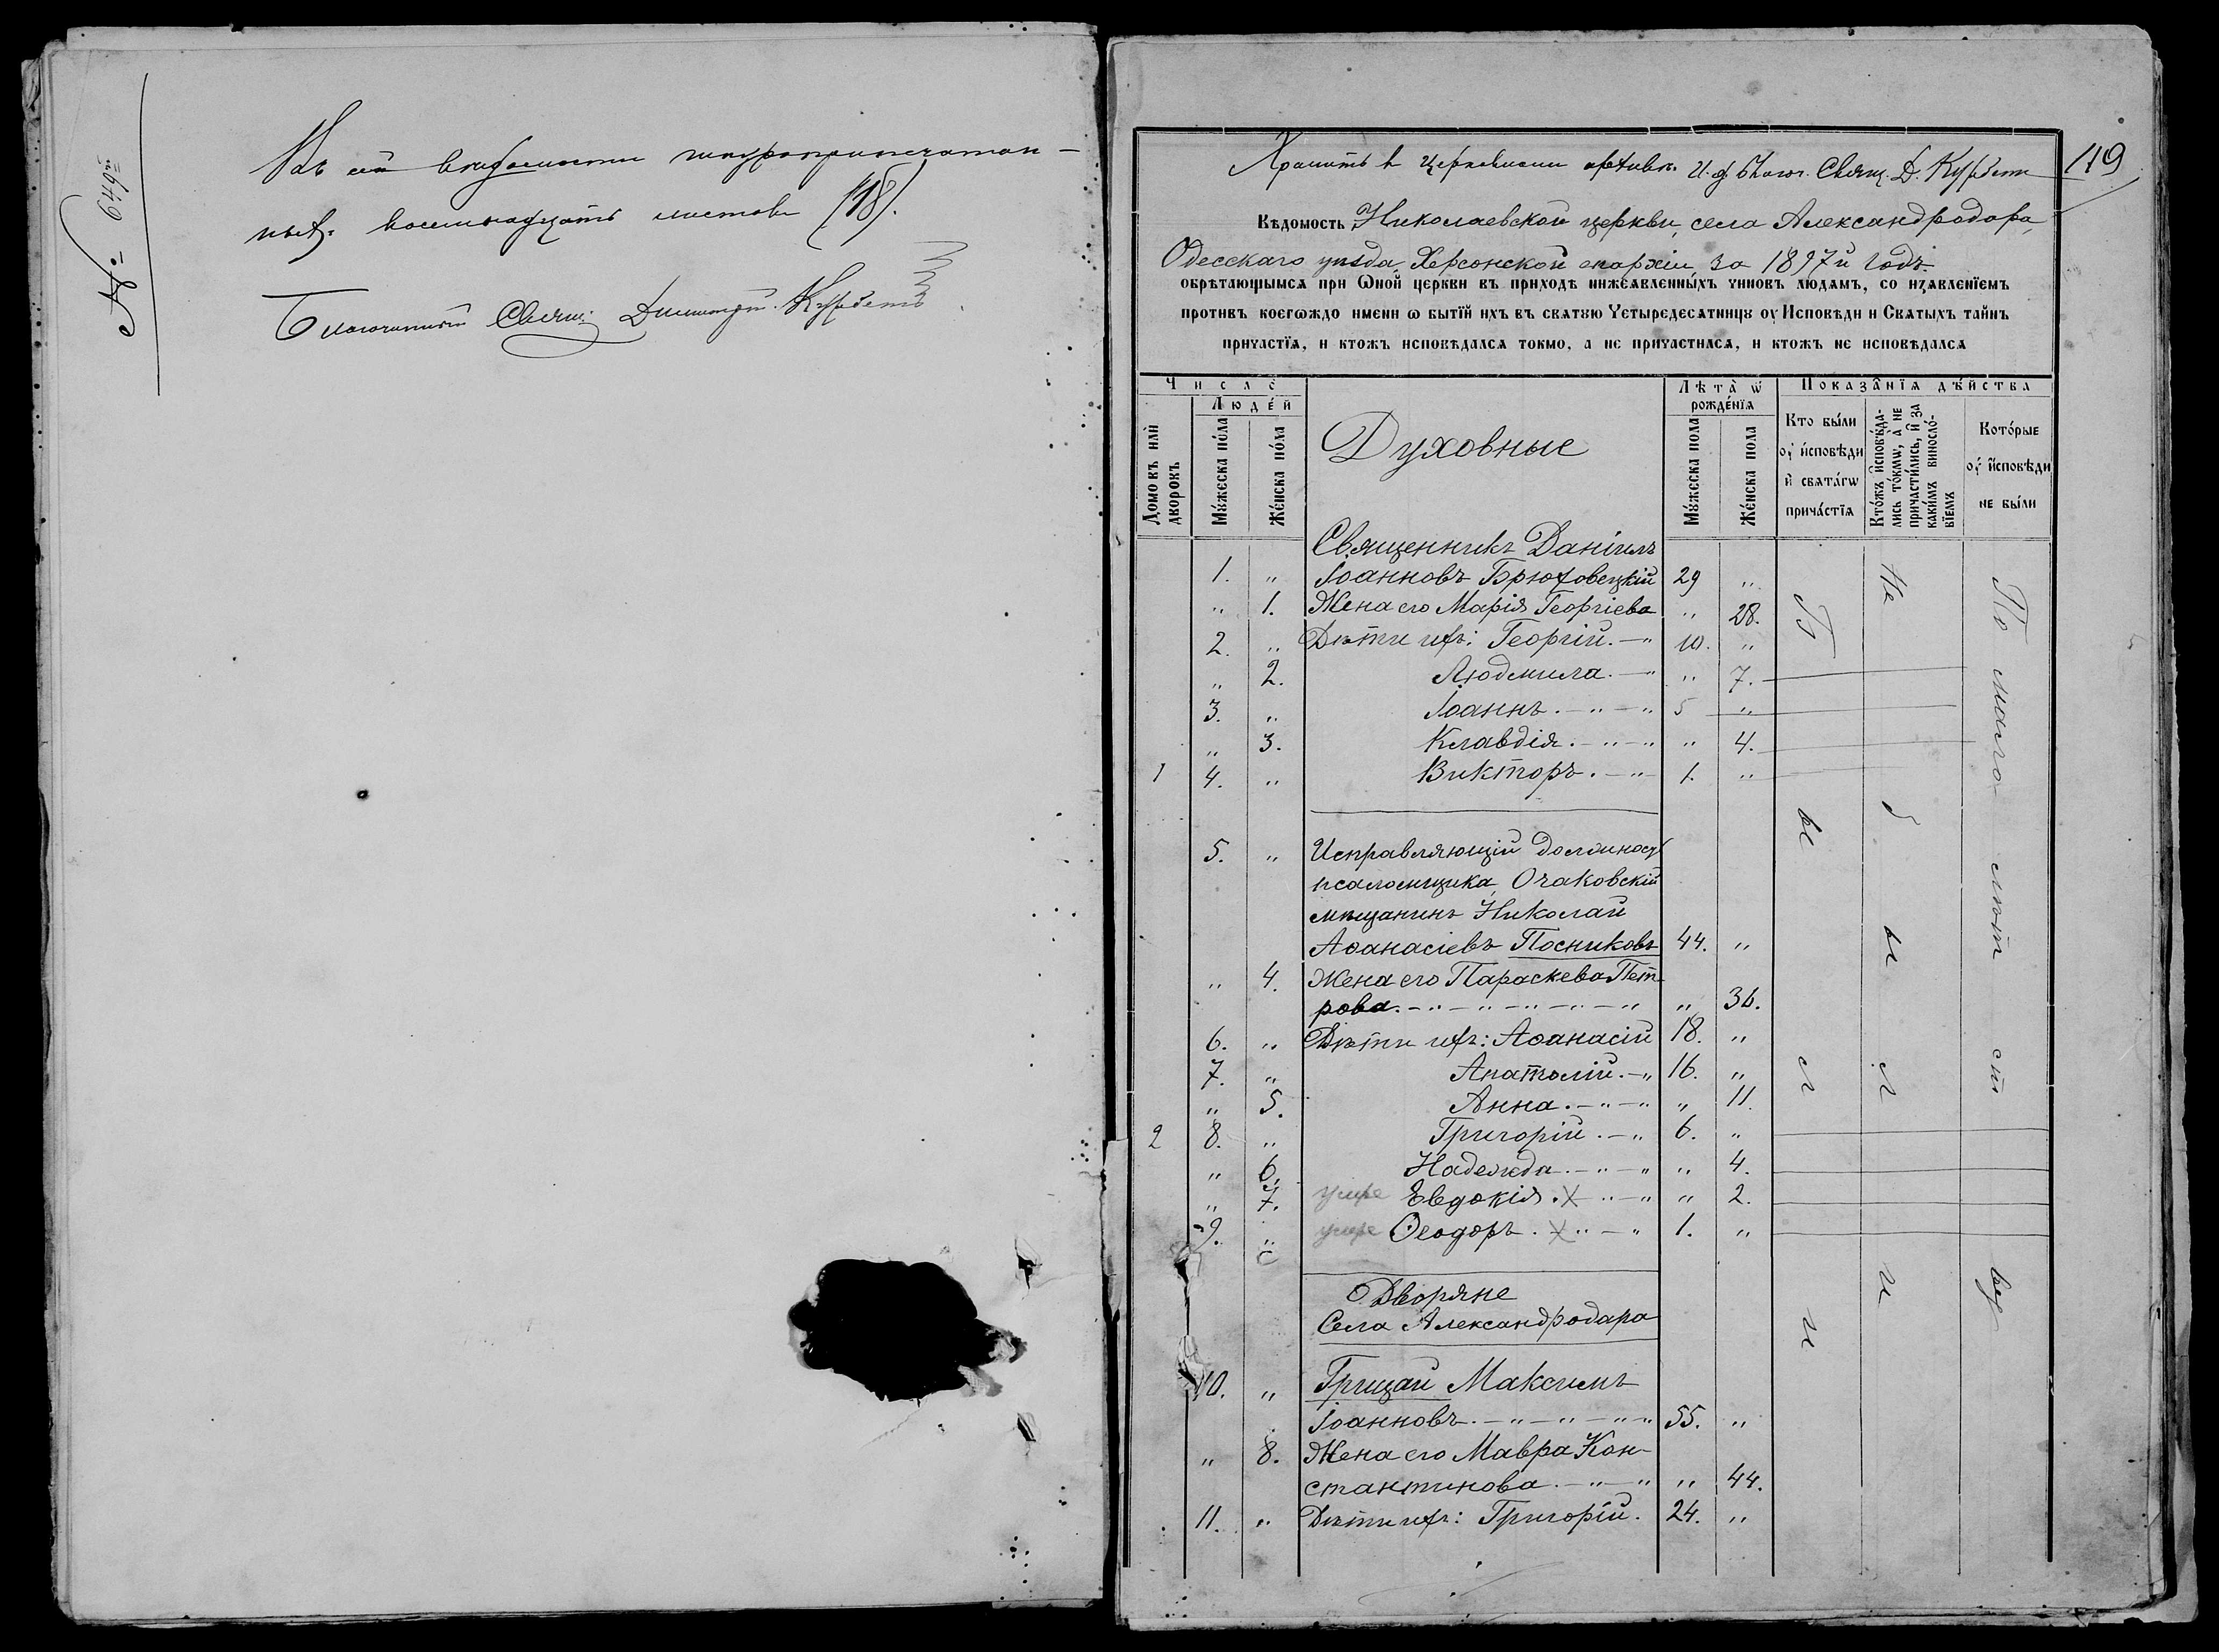 № 649й
Въ сей ведомости шнуроприпечатан-
ныхъ восемнадцать листовъ (18).
Благочинный Свящ. Димитрій Курбетъ
119
Хранить в церковномъ архивѣ. И. д. Благоч. Свящ. Д. Курбетъ
Вѣдомость Николаевской церкви, села Александродара,
Одесскаго уѣзда, Херсонской епархіи, за 1897й годъ.
обрѣтающымсѧ при Ѡной церкви въ приходѣ нижеѧвленныхъ чиновъ людамъ, со изѧвленїемъ
противъ коегѡждо имени ѡ бытїй ихъ въ свѧтую Четыредесѧтницу оу Исповѣди и Свѧтыхъ тайнъ
причастїѧ, и ктожъ исповѣдалсѧ токмо, а не причастилсѧ, и ктожъ не исповѣдалсѧ
Числѐ
Лѣта̀ ѡ҆
Показа̑нїѧ дѣ́йства
Люде́й
рожде́нїѧ
Домовъ илѝ дворовъ
Му́жеска по́ла
Же́нска по́ла
Духовные
Му́жеска пола
Же́нска пола
Кто бы́ли оу҆ исповѣди и҆ свѧта́гѡ прича́стїѧ
Кто́жъ исповѣда-лись то́кмѡ, а҆ не причасти́лись, и҆ за каки́мъ виносло́-вїемъ
Кото́рые оу҆ исповѣди не бы́ли
Священникъ Даніилъ
1. " Іоанновъ Брюховецкій 29 "
" 1. Жена его Марія Георгіева " 28.
2. " Дѣти ихъ: Георгій. — " 10. "
" 2. Людмила. — " " 7.
3. " Іоаннъ. — " — " 5 "
" 3. Клавдія. — " — " " 4.
1 4. " Викторъ. — " 1. "
5. " Исправляющій должность
псаломщика, Очаковскій
мѣщанинъ Николай
Аѳанасіевъ Посниковъ 44. "
" 4. Жена его Параскева Пет-
рова. — " — " — " — " — " " 36.
6. " Дѣти ихъ: Аѳанасій 18. "
7. " Анатолій. — " 16. "
" 5. Анна. — " — " " 11.
2 8. " Григорій. — " 6. "
" 6. Надежда. — " — " " 4.
" 7. умре Евдокія. X " — " " 2.
9. " умре Ѳеодоръ. X " — " 1. "
Дворяне
Села Александродара
10. " Грицай Максимъ
Іоанновъ. — " — " — " — " 55. "
" 8. Жена его Мавра Кон-
стантинова. — " — " " 44.
11. " Дѣти ихъ: Григорій. 24. "
Б ы л и
Не б ы л и
По мало лѣт ст ву